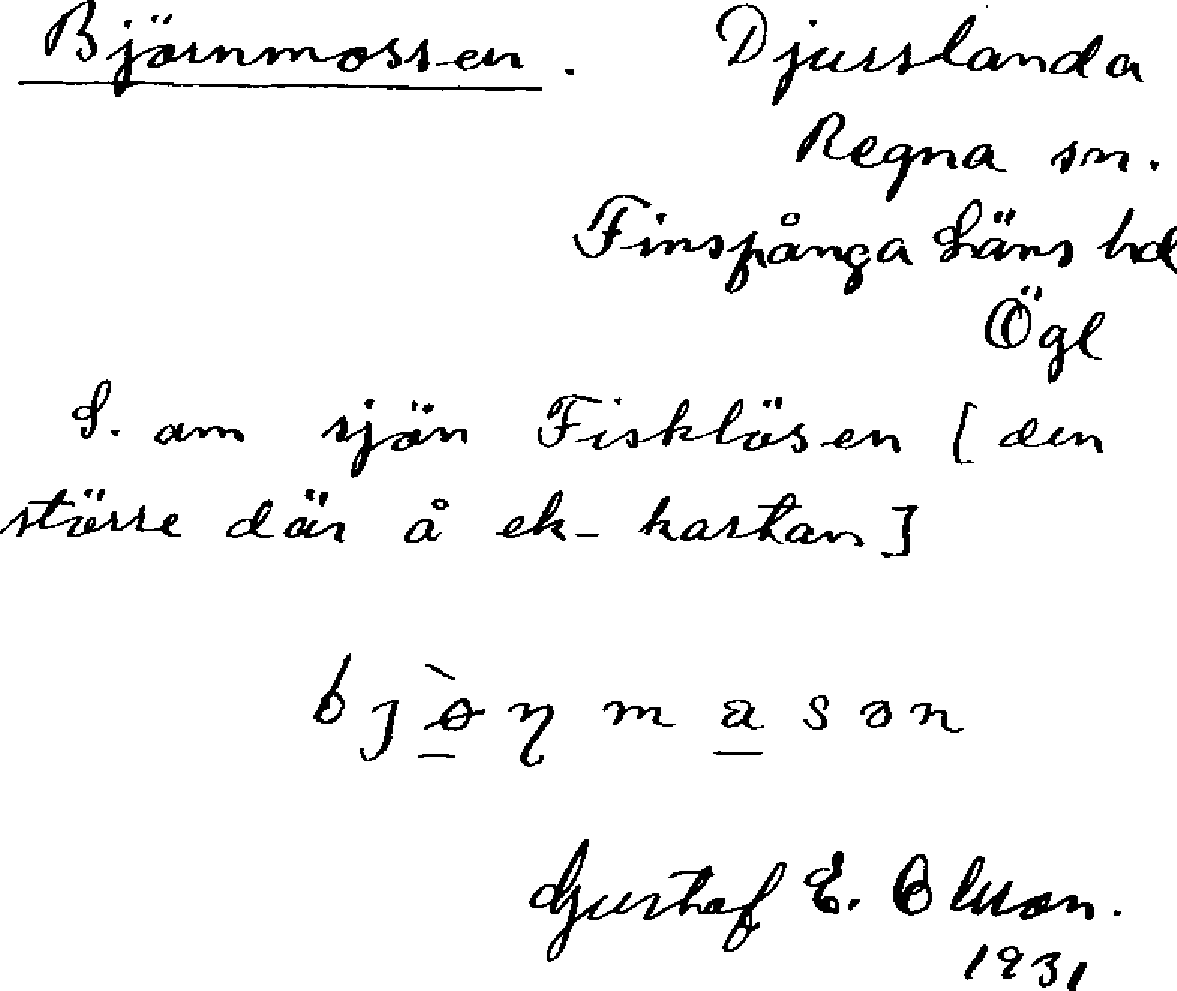 Björnmossen. Djurslanda
Regna sn.
Finspånga Läns hd
Ögl
S. om sjön Fisklösen [den
större där å ek-kartan]
Gustaf E. Olsson.
1931